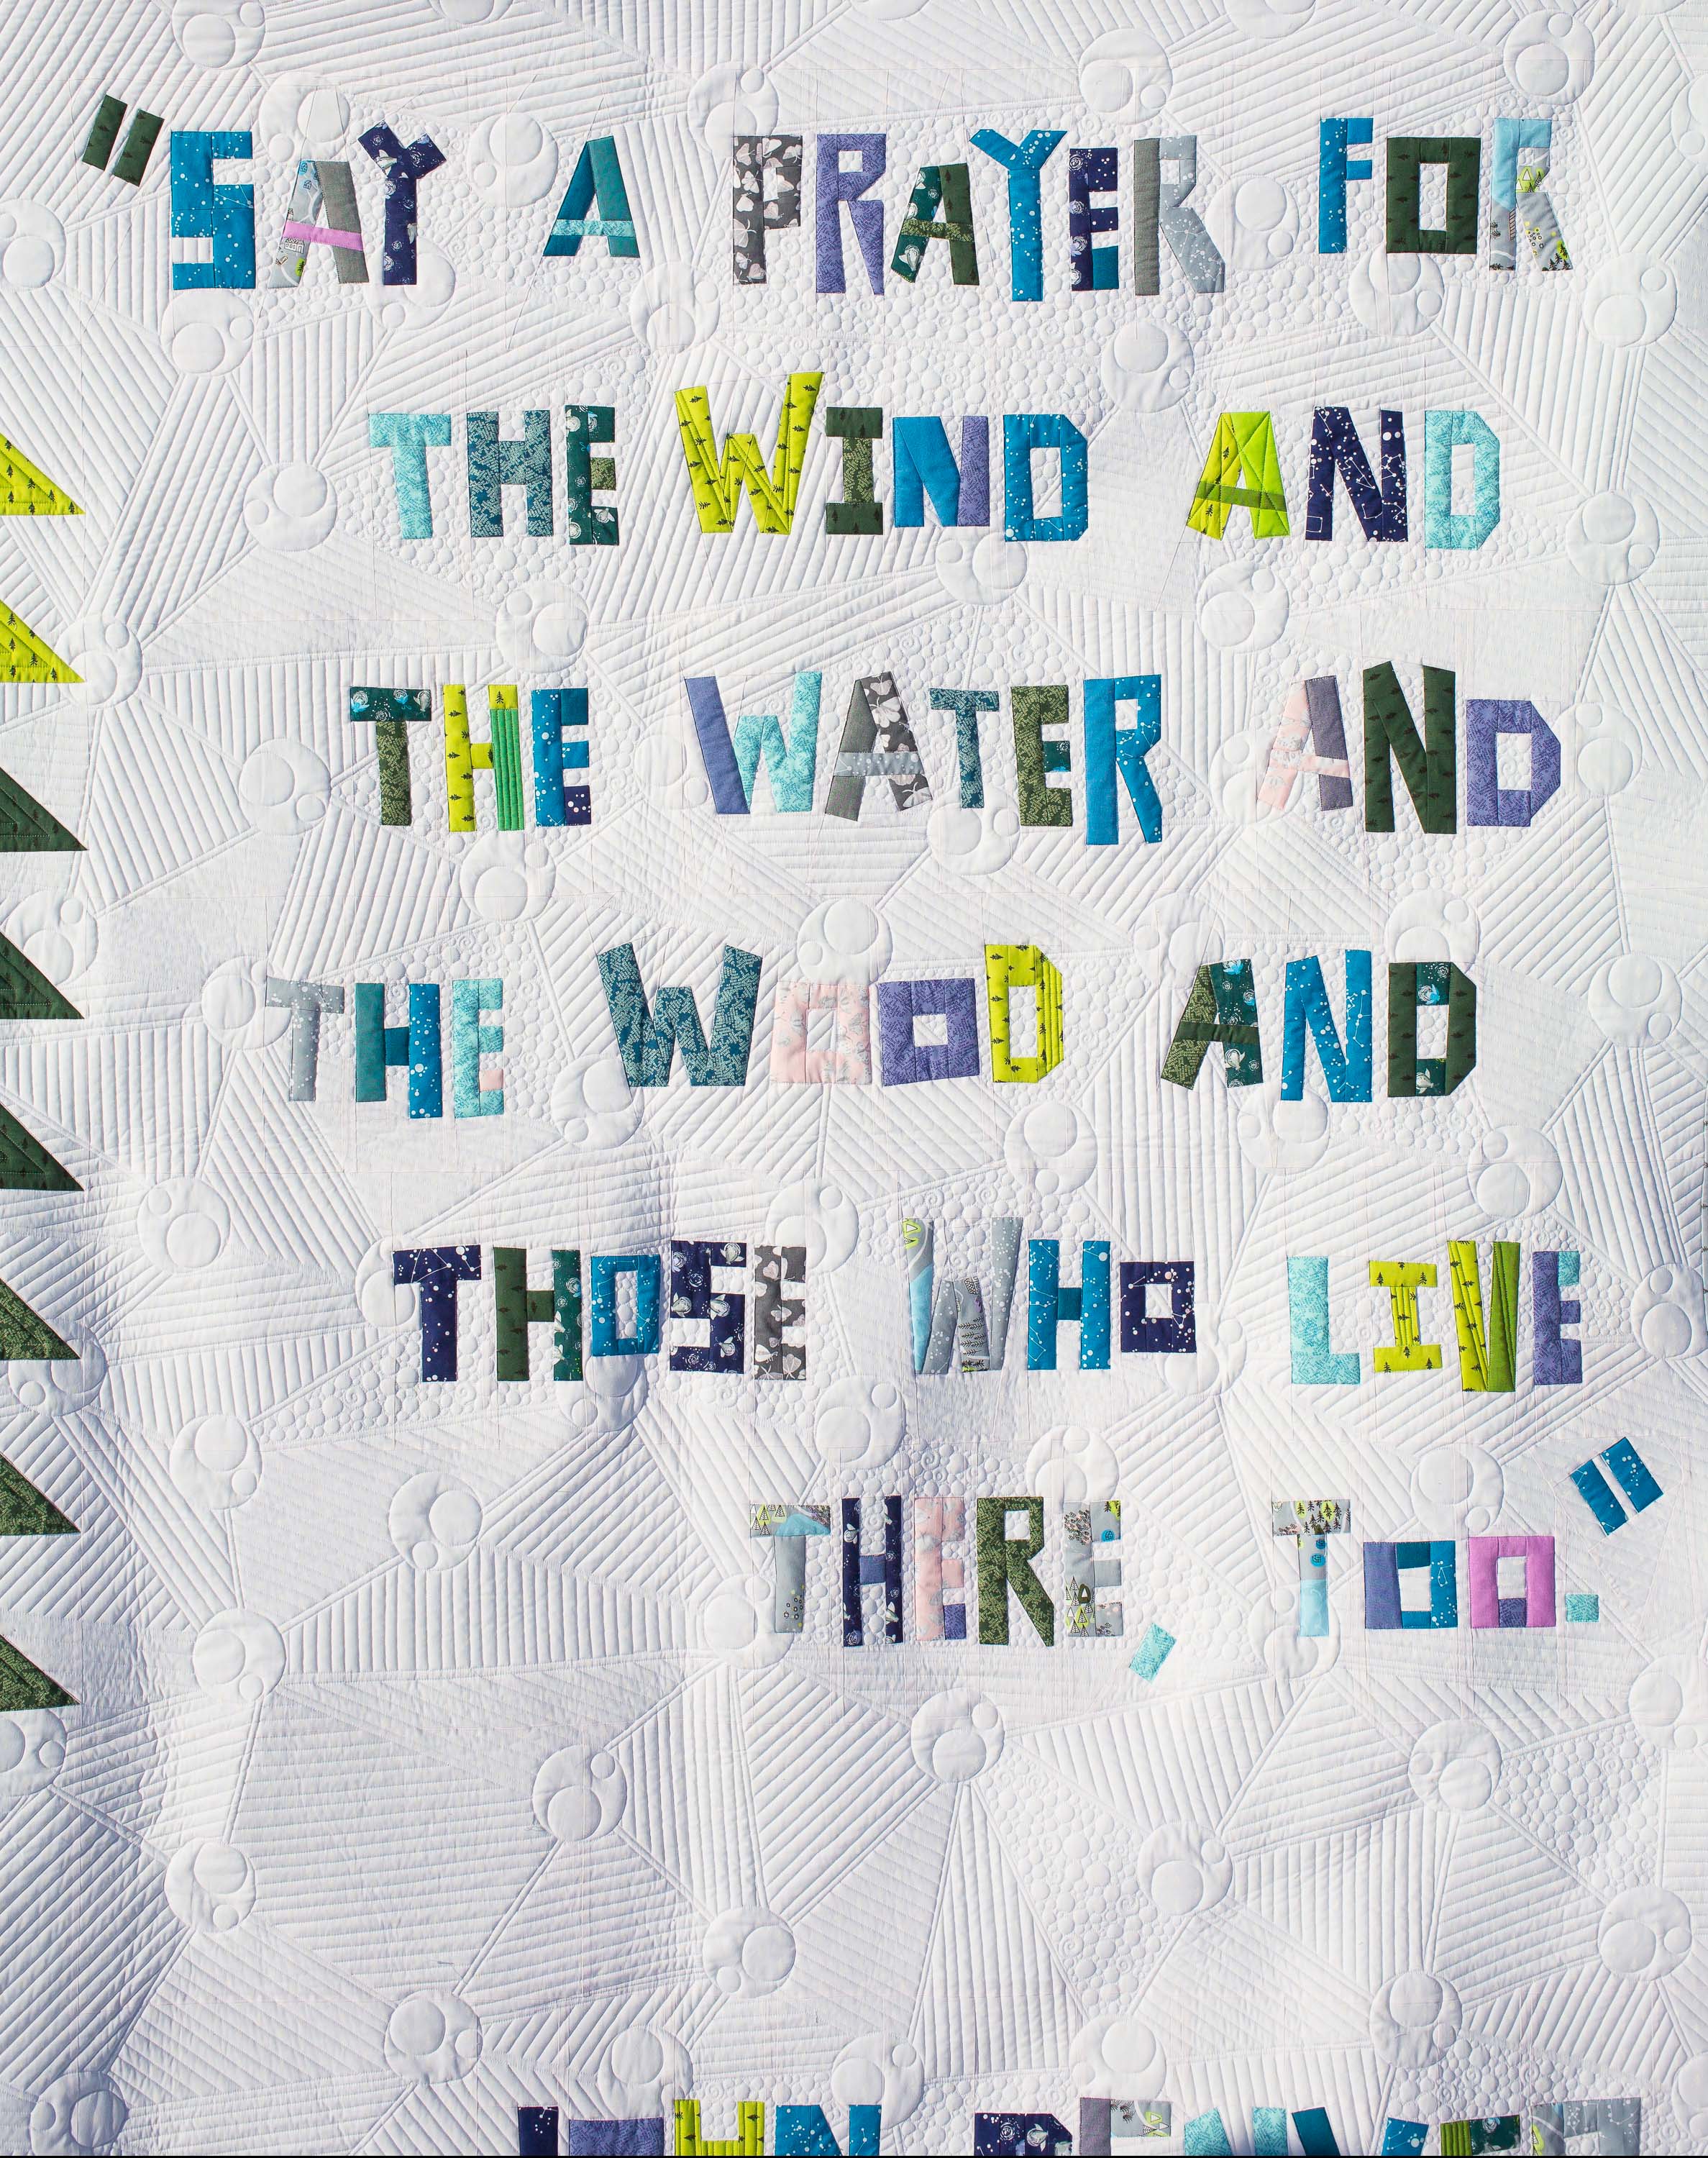 "SAY A PRAYER FOR
THE WIND AND
THE WATER AND
THE WOOD AND
THOSE WHO LIVE
THERE, TOO."
JOHN DENVER